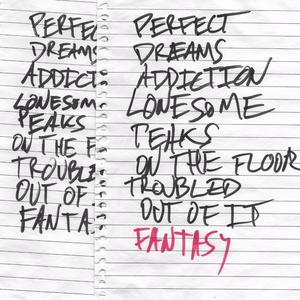 PERFEC
DREAMS
ADDICTI
LONESOM
PEAKS
ON THE F
TROUBLE
OUT OF
FANTA
PERFECT
DREAMS
ADDICTION
LONESOME
PEAKS
ON THE FLOOR
TROUBLED
OUT OF IT
FANTASY